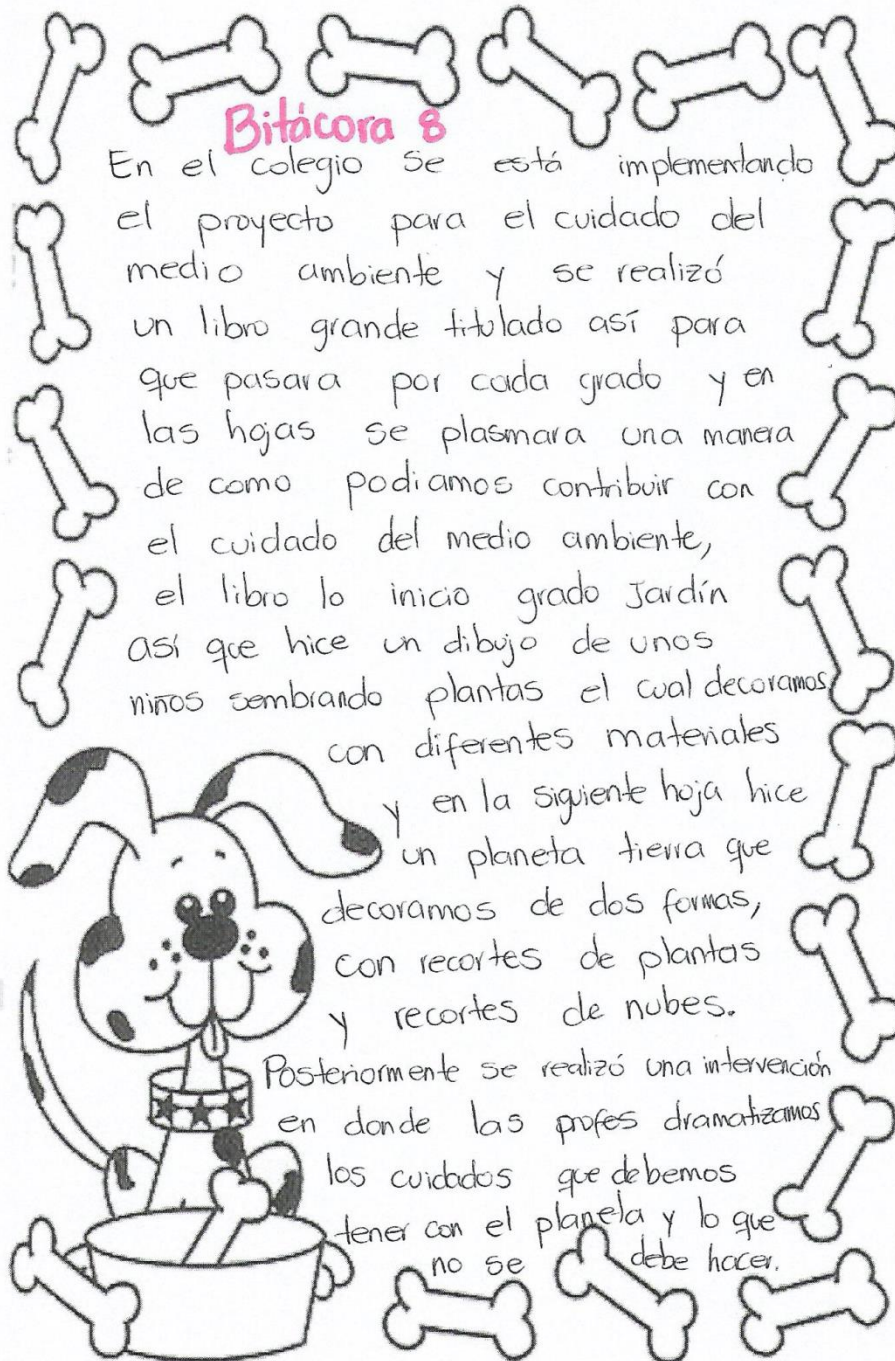 Bitácora 8
En el colegio se está implementando
el proyecto para el cuidado del
medio ambiente y se realizó
un libro grande titulado así para
que pasara por cada grado y en
las hojas se plasmara una manera
de como podiamos contribuir con
el cuidado del medio ambiente,
el libro lo inicio grado Jardín
así que hice un dibujo de unos
niños sembrando plantas el cual decoramos
con diferentes materiales
y en la siguiente hoja hice
un planeta tierra que
decoramos de dos formas,
con recortes de plantas
y recortes de nubes.
Posteriormente se realizó una intervención
en donde las profes dramatizamos
los cuidados que debemos
tener con el planeta y lo que
no se debe hacer.